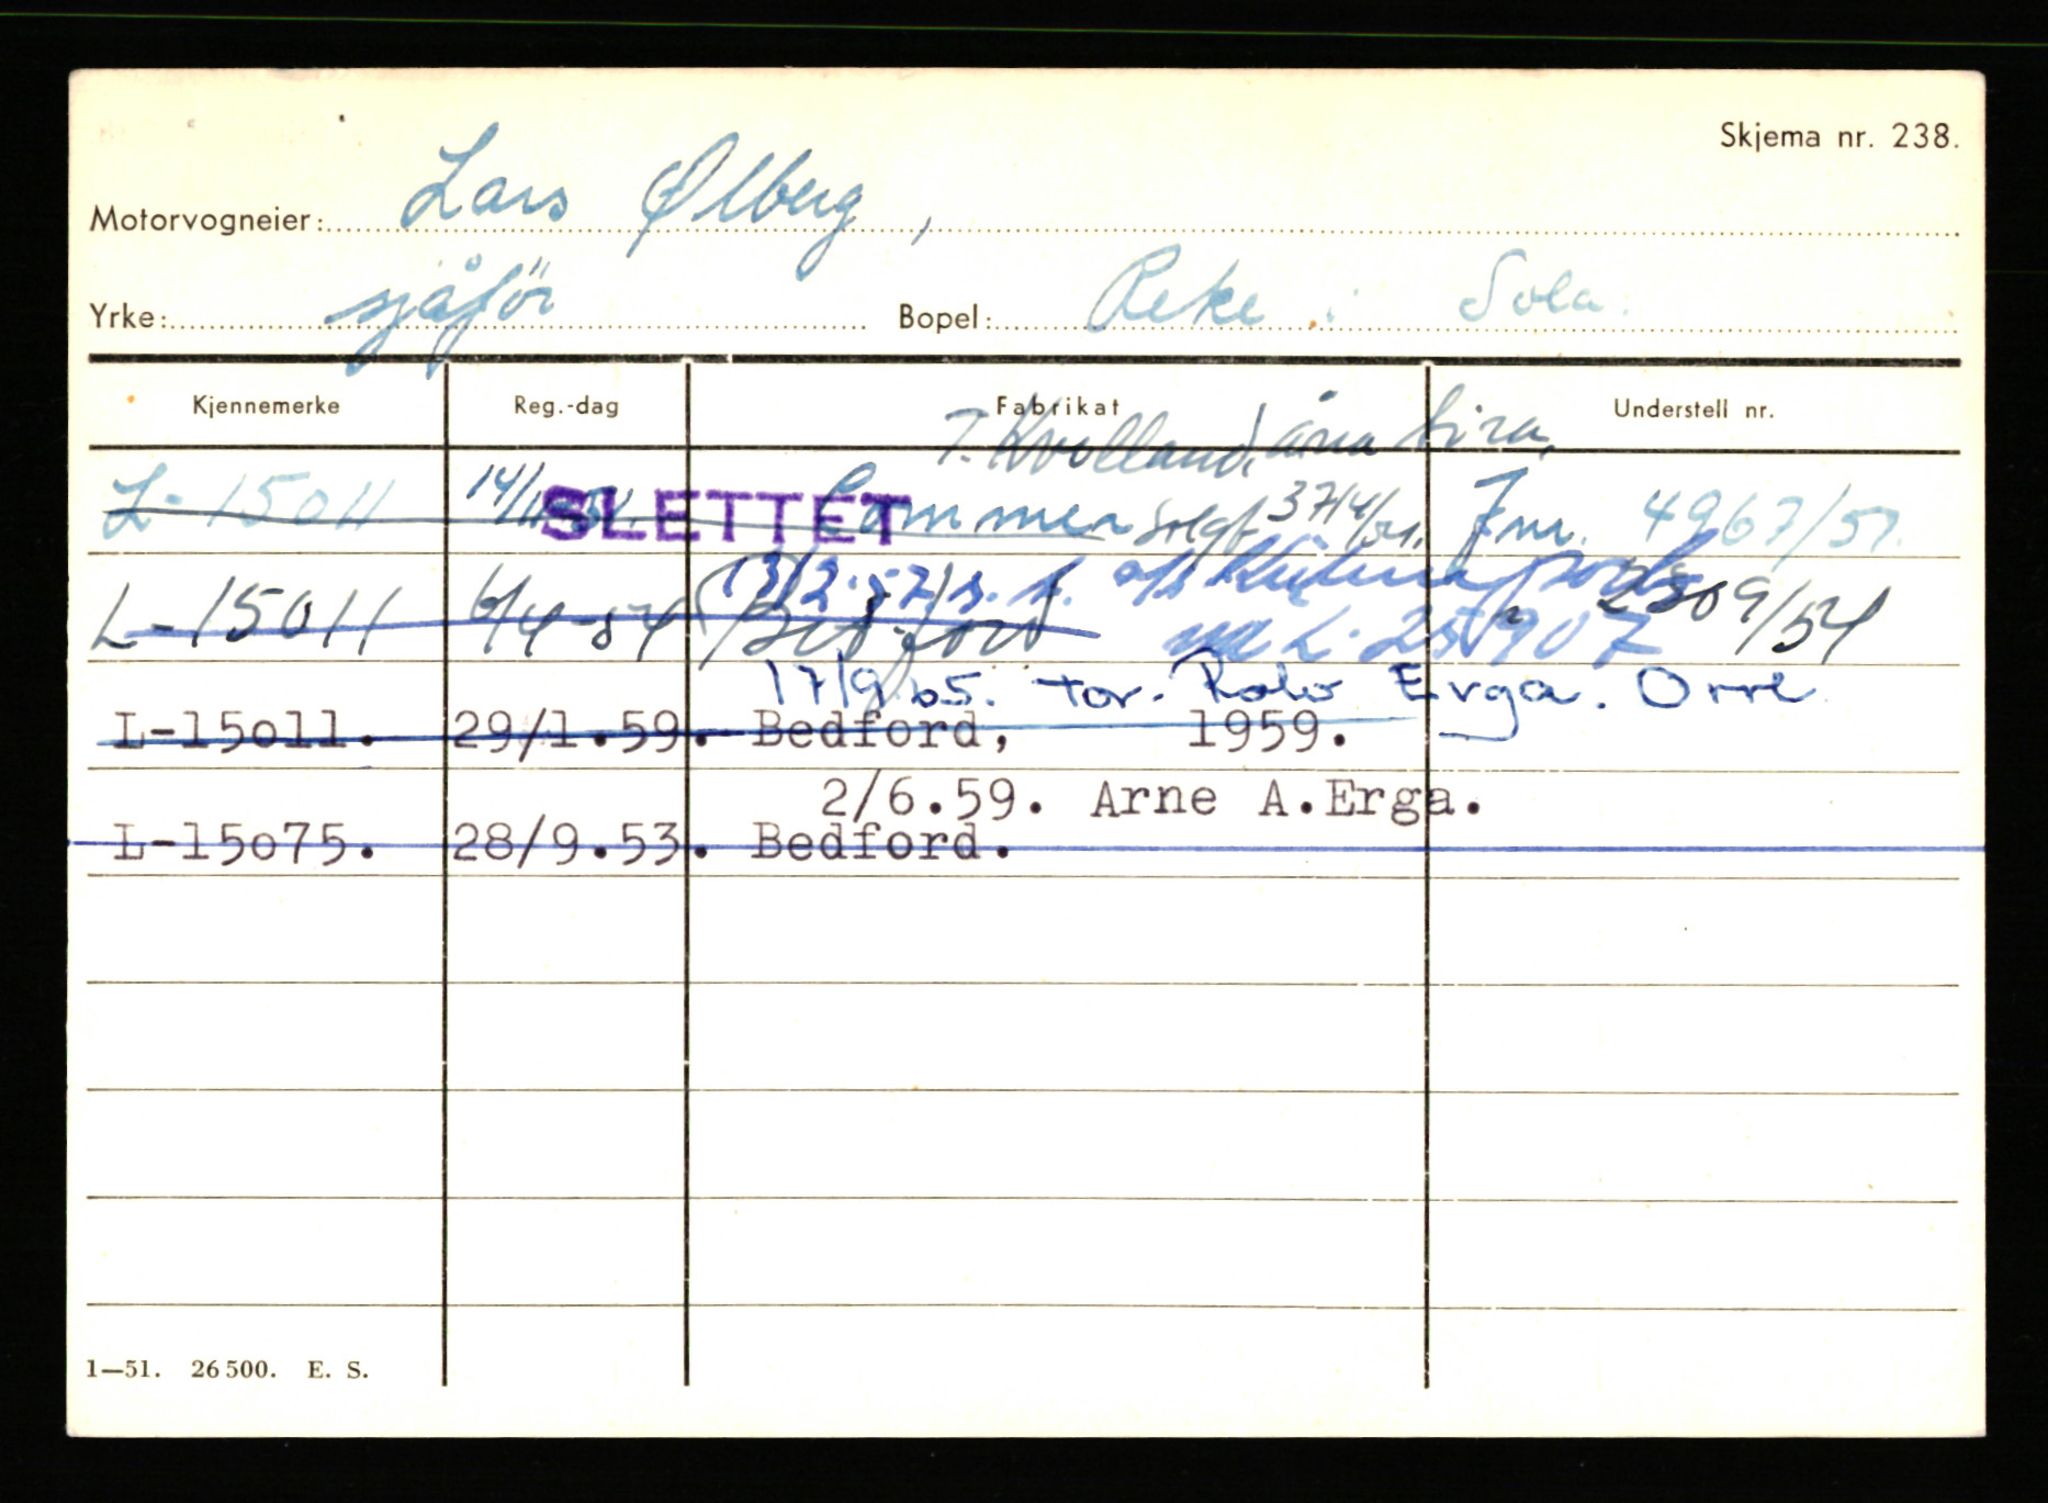 Skjema nr. 238.
Motorvogneier: Lars Ølberg,
Yrke: sjåför Bopel: Reke i Sola.
Kjennemerke Reg.-dag Fabrikat Understell nr.
T. Kvolland, åna Sira,
L-15011 14/11 SLETTET Commer solgt Jnr. 4967/51.
13/2.57 s. f. a/s
L-15011 6/4-54 Bedford 2309/54
17/9.65. tor. Rolv Erga. Orre
L-15o11. 29/1.59. Bedford, 1959.
2/6.59. Arne A.Erga.
L-15o75. 28/9.53. Bedford.
1—51. 26500. E. S.